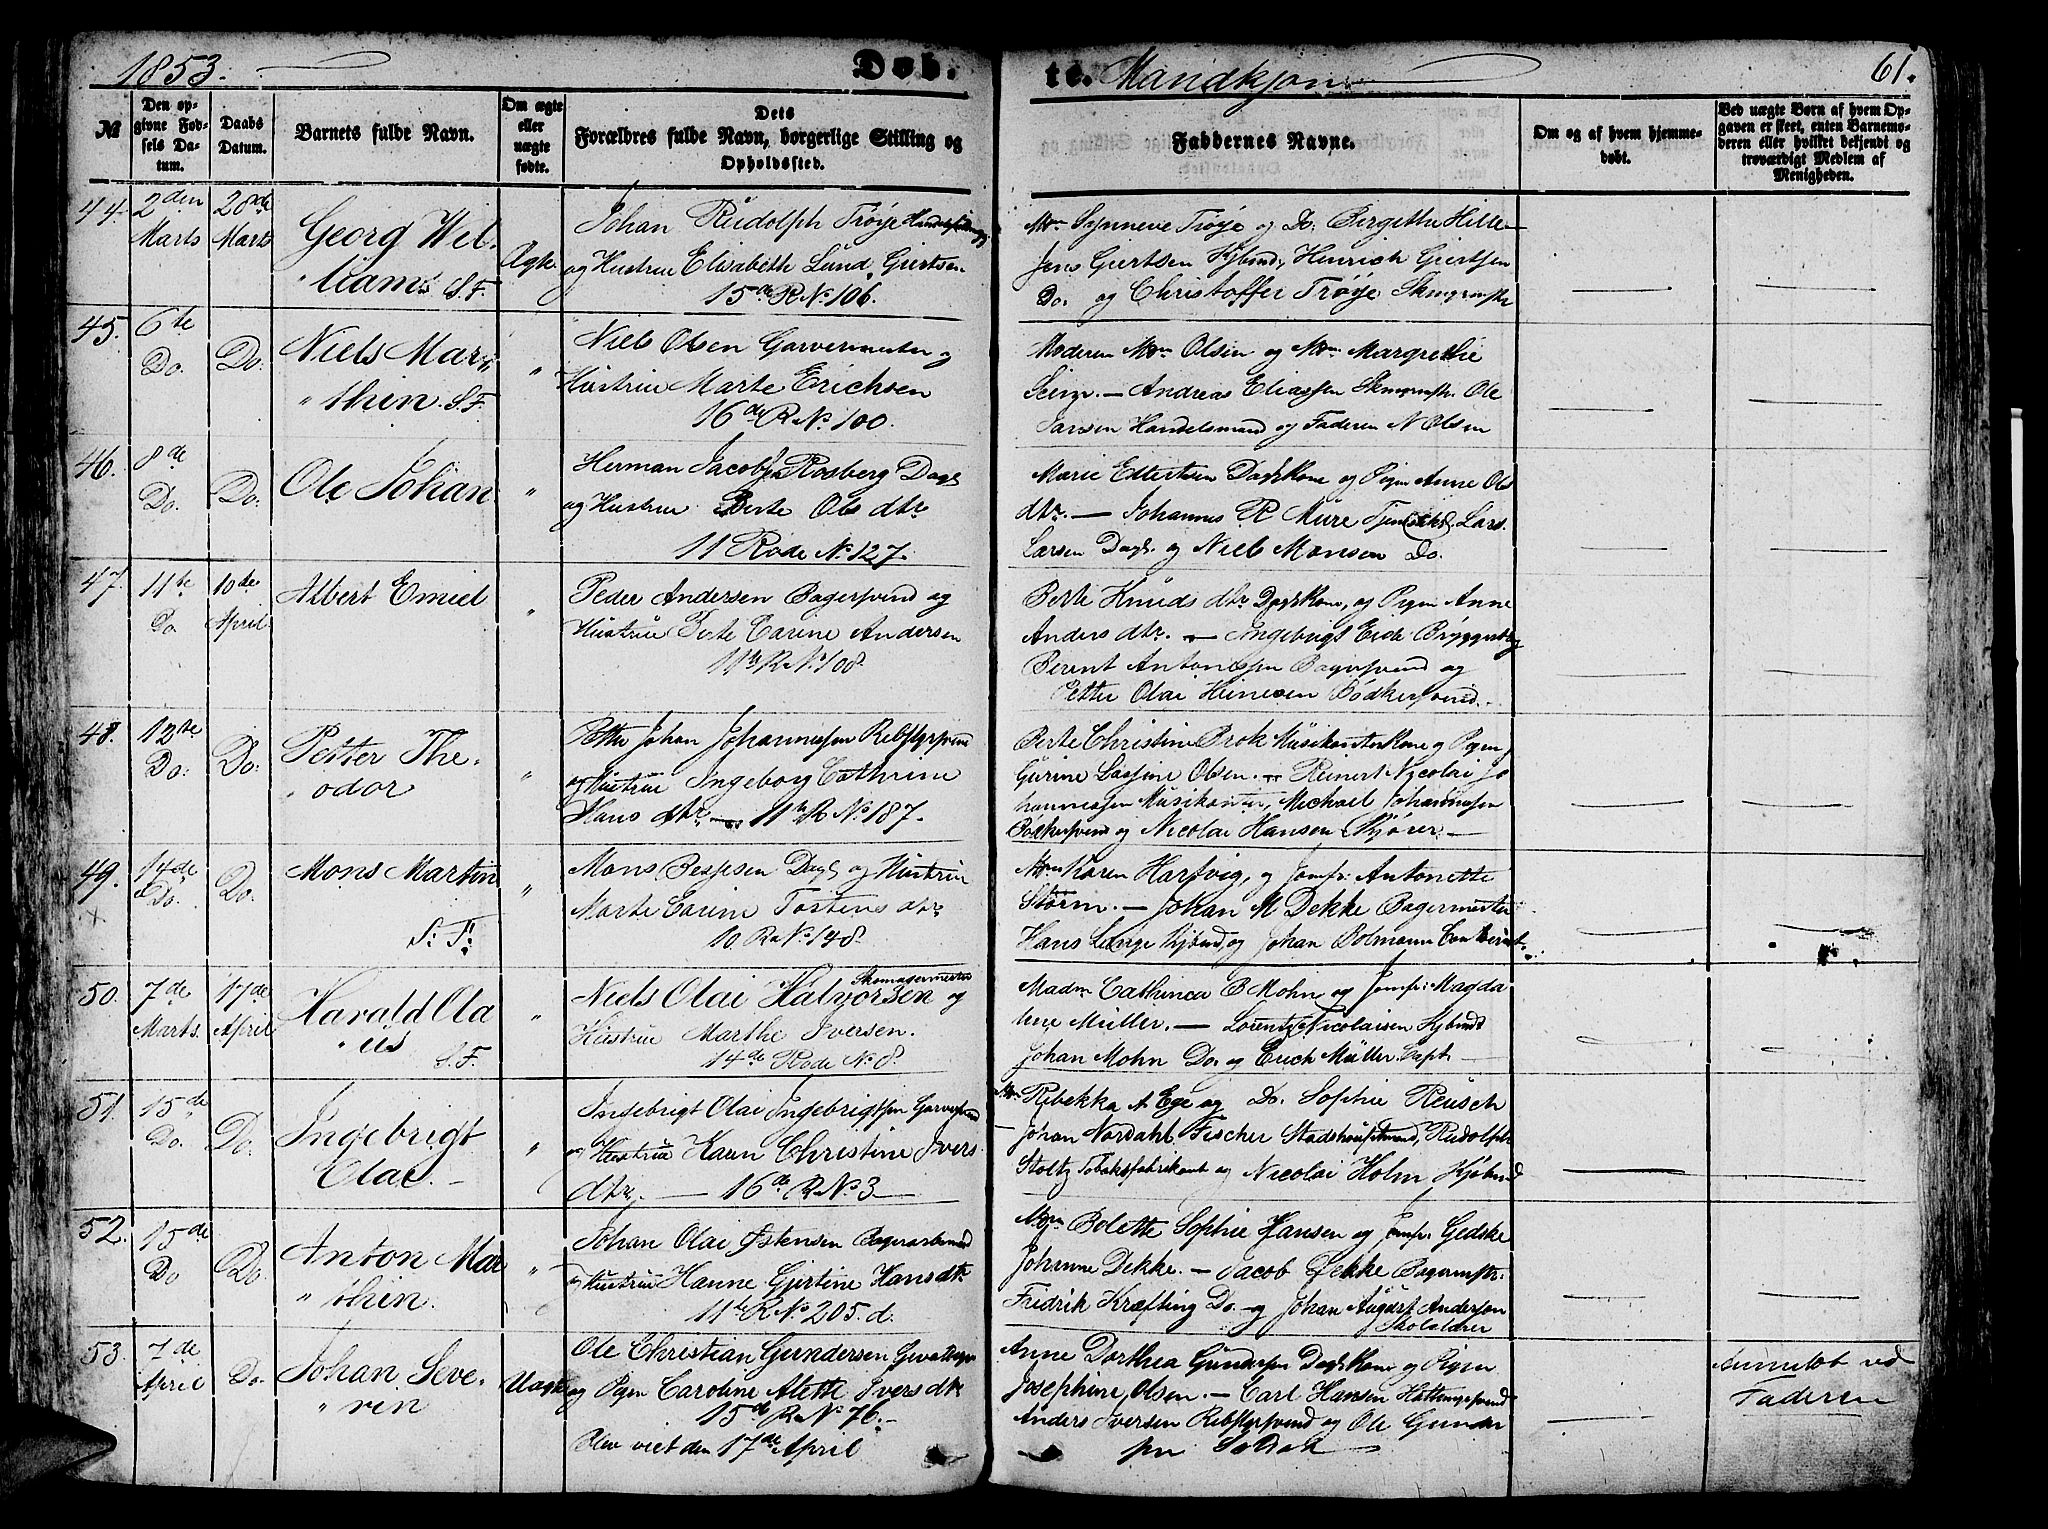 1853.
Døb.
te. Mandkjøn.
61.
№
Den op-
givne Fød-
sels Da-
tum.
Daabs
Datum.
Barnets fulde Navn.
Om ægte
eller
uægte
fødte.
Dets
Forældres fulde Navn, borgerlige Stilling og
Opholdssted.
Faddernes Navne.
Om og af hvem hjemme-
døbt.
Ved uægte Børn af hvem Op-
gaven er skeet, enten Barnemo-
deren eller hvilket bekjendt og
troværdigt Medlem af
Menigheden.
44. 2den Marts
28de Marts
Georg Wil-
"liam S.F.
Ægte
Johan Rudolph Trøye
og Hustrue Elisabeth Lund Giertsen
15de R No 106.
Mdm Synneve Trøye og Do. Birgithe Hille
Jens Giertsen Kjbmd, Henrich Giertsen
Do. og Christoffer Trøye Skmgrmstr
45. 6te Do.
Do.
Niels Mar-
"thin. S.F.
"
Niels Olsen Garvermester og
Hustrue Marte Erichsen
16de R No 100.
Moderen Mdm Olsen og Mdm Margrethe
— Andreas Eliassen Skmgrmstr. Ole
Larsen Handelsmand og Faderen N Olsen
46. 8de Do.
Do.
Ole Johan
"
Herman Jacobsen Rosberg Dagl
og Hustrue Berte Ols dtr
11 Rode No 127.
Marie Edtertsen DaglKone og Pigen Anne Ols
dtr. — Johannes R Mure Lars
Larsen Dagl. og Niels Monsen Do.
47. 11te Do
10de April
Albert Emiel
"
Peder Andersen Bagersvend og
Hustrue Berte Carine Andersen
11te R No 108.
Berte Knuds dtr DaglKone, og Pigen Anne
Anders dtr. — Ingebrigt Eide
Berent Antonessen Bagersvend og
Petter Olai Heinesen Bødkersvend.
48. 12te Do:
Do:
Petter The-
"odor
"
Petter Johan Johannessen Rebslgrsvend
og Hustrue Ingeborg Cathrine
Hans dtr. — 11te R No 187.
Berte Christine Brok MusikanterKone og Pigen
Gurine Lassine Olsen. — Reinert Nicolai Jo
hannessen Musikanter, Michael Johannessen
Bødkersvend og Nicolai Hansen
49. 14de Do.
Do.
Mons Martin
S. F.
"
Mons Dagl og Hustrue
Marte Carine Tostens dtr
10 R No 148.
Mdm Karen Hartvig, og Jomfr: Antonette
Storm. — Johan M Dekke Bagermester
Hans Lunge Kjbmd, og Johan Bolmann
50. 7de Marts.
17de April
Harald Ola
"us
S.F.
"
Skomagermester
Niels Olai Halvorsen og
Hustrue Marthe Iversen.
14de Rode No 8.
Madm Cathinca B Mohn og Jomfr: Magda
lene Müller. — Lorentz Nicolaisen Kjbmd
Johan Mohn Do. og Erich Müller Capt
51. 15de Do.
Do.
Ingebrigt
Olai. —
"
Ingebrigt Olai Ingebrigtsen Garversvend
og Hustrue Karen Christine Ivers
dtr. — 16de R No 3 —
Mdm Ribekka A Ege og Do. Sophie Reusch
— Johan Nordahl Fischer Stadshauptmand, Rudolph
Stoltz Tobaksfabrikant og Nicolai Holm Kjøbmd
52. 15de Do
Do.
Anton Mar
"thin.
"
Johan Olai Østensen Bagerarbmnd
og Hustrue Hanne Gjertine Hans dtr
11te R No 205. d.
Mdm Bolette Sophie Hansen og Jomfr: Gedske
Johanne Dekke. — Jacob Dekke Bagermstr.
Fridrik Kræfting Do. og Johan August Andersen
Skolelærer
53. 7de April
Do.
Johan Seve-
"rin
Uægte
Ole Christian Gundersen
og Pigen Caroline Alette Ivers dtr
15de R No 76. —
Blev viet den 17de April
Anne Dorthea Gundersen DaglKone og Pigen
Josephine Olsen. — Carl Hansen
Anders Iversen Rebslgrsvend og Ole Gunder
sen Soldat —
Anmeldt ved
Faderen